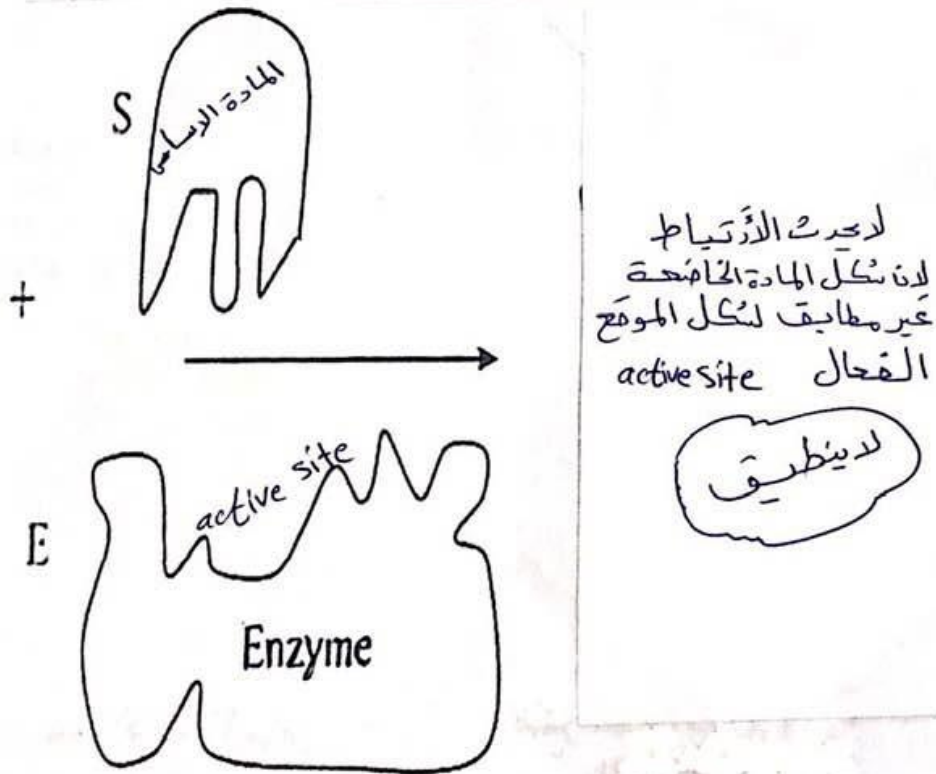 S
المادة الاساس
+
active site
E
Enzyme
لا يحدث الأرتباط
لان شكل المادة الخاضعة
غير مطابق لشكل الموقع
الفعال active site
لا ينطبق